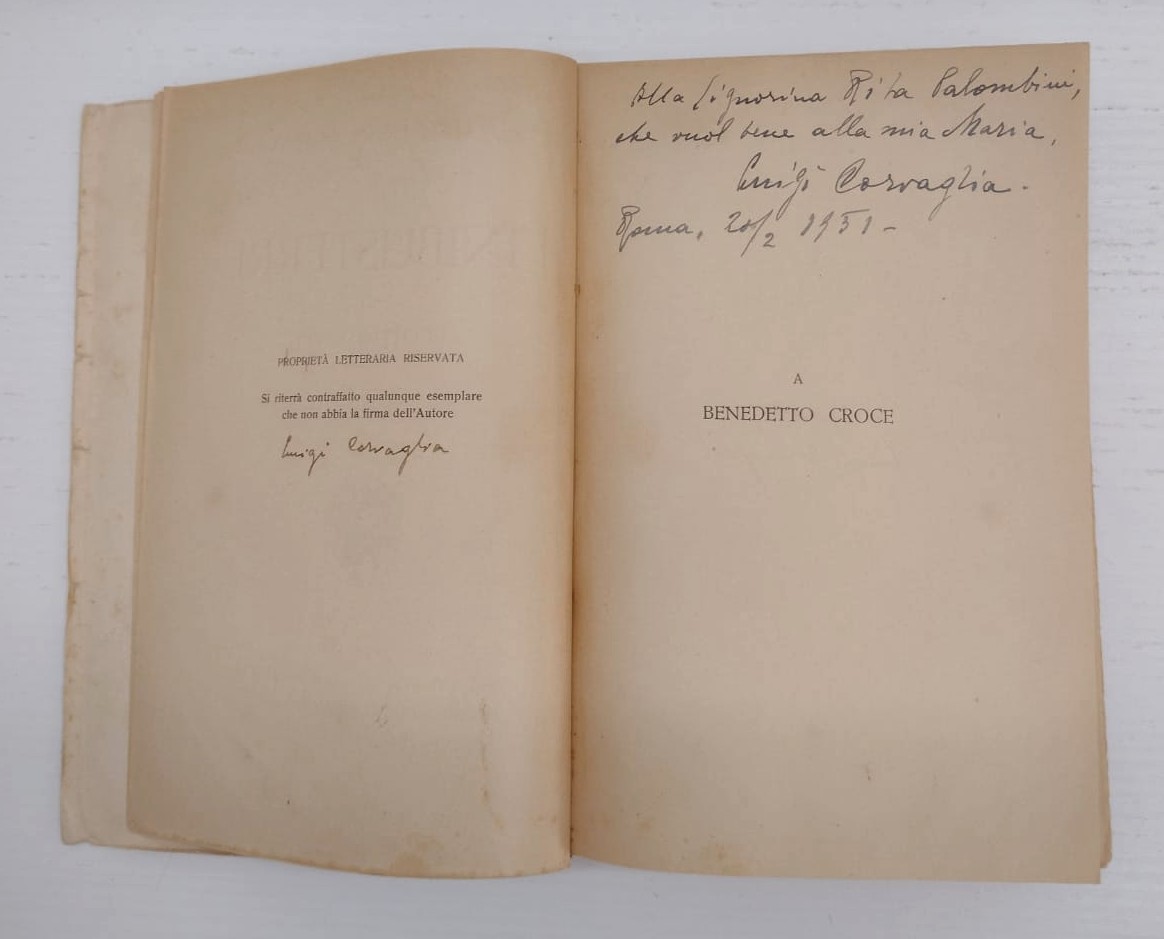 PROPRIETÀ LETTERARIA RISERVATA
Si riterrà contraffatto qualunque esemplare
che non abbia la firma dell'Autore
Luigi Corvaglia
Alla Signorina Rita Palombini,
che vuol bene alla mia Maria,
Luigi Corvaglia.
Roma, 20/2 1951 -
A
BENEDETTO CROCE